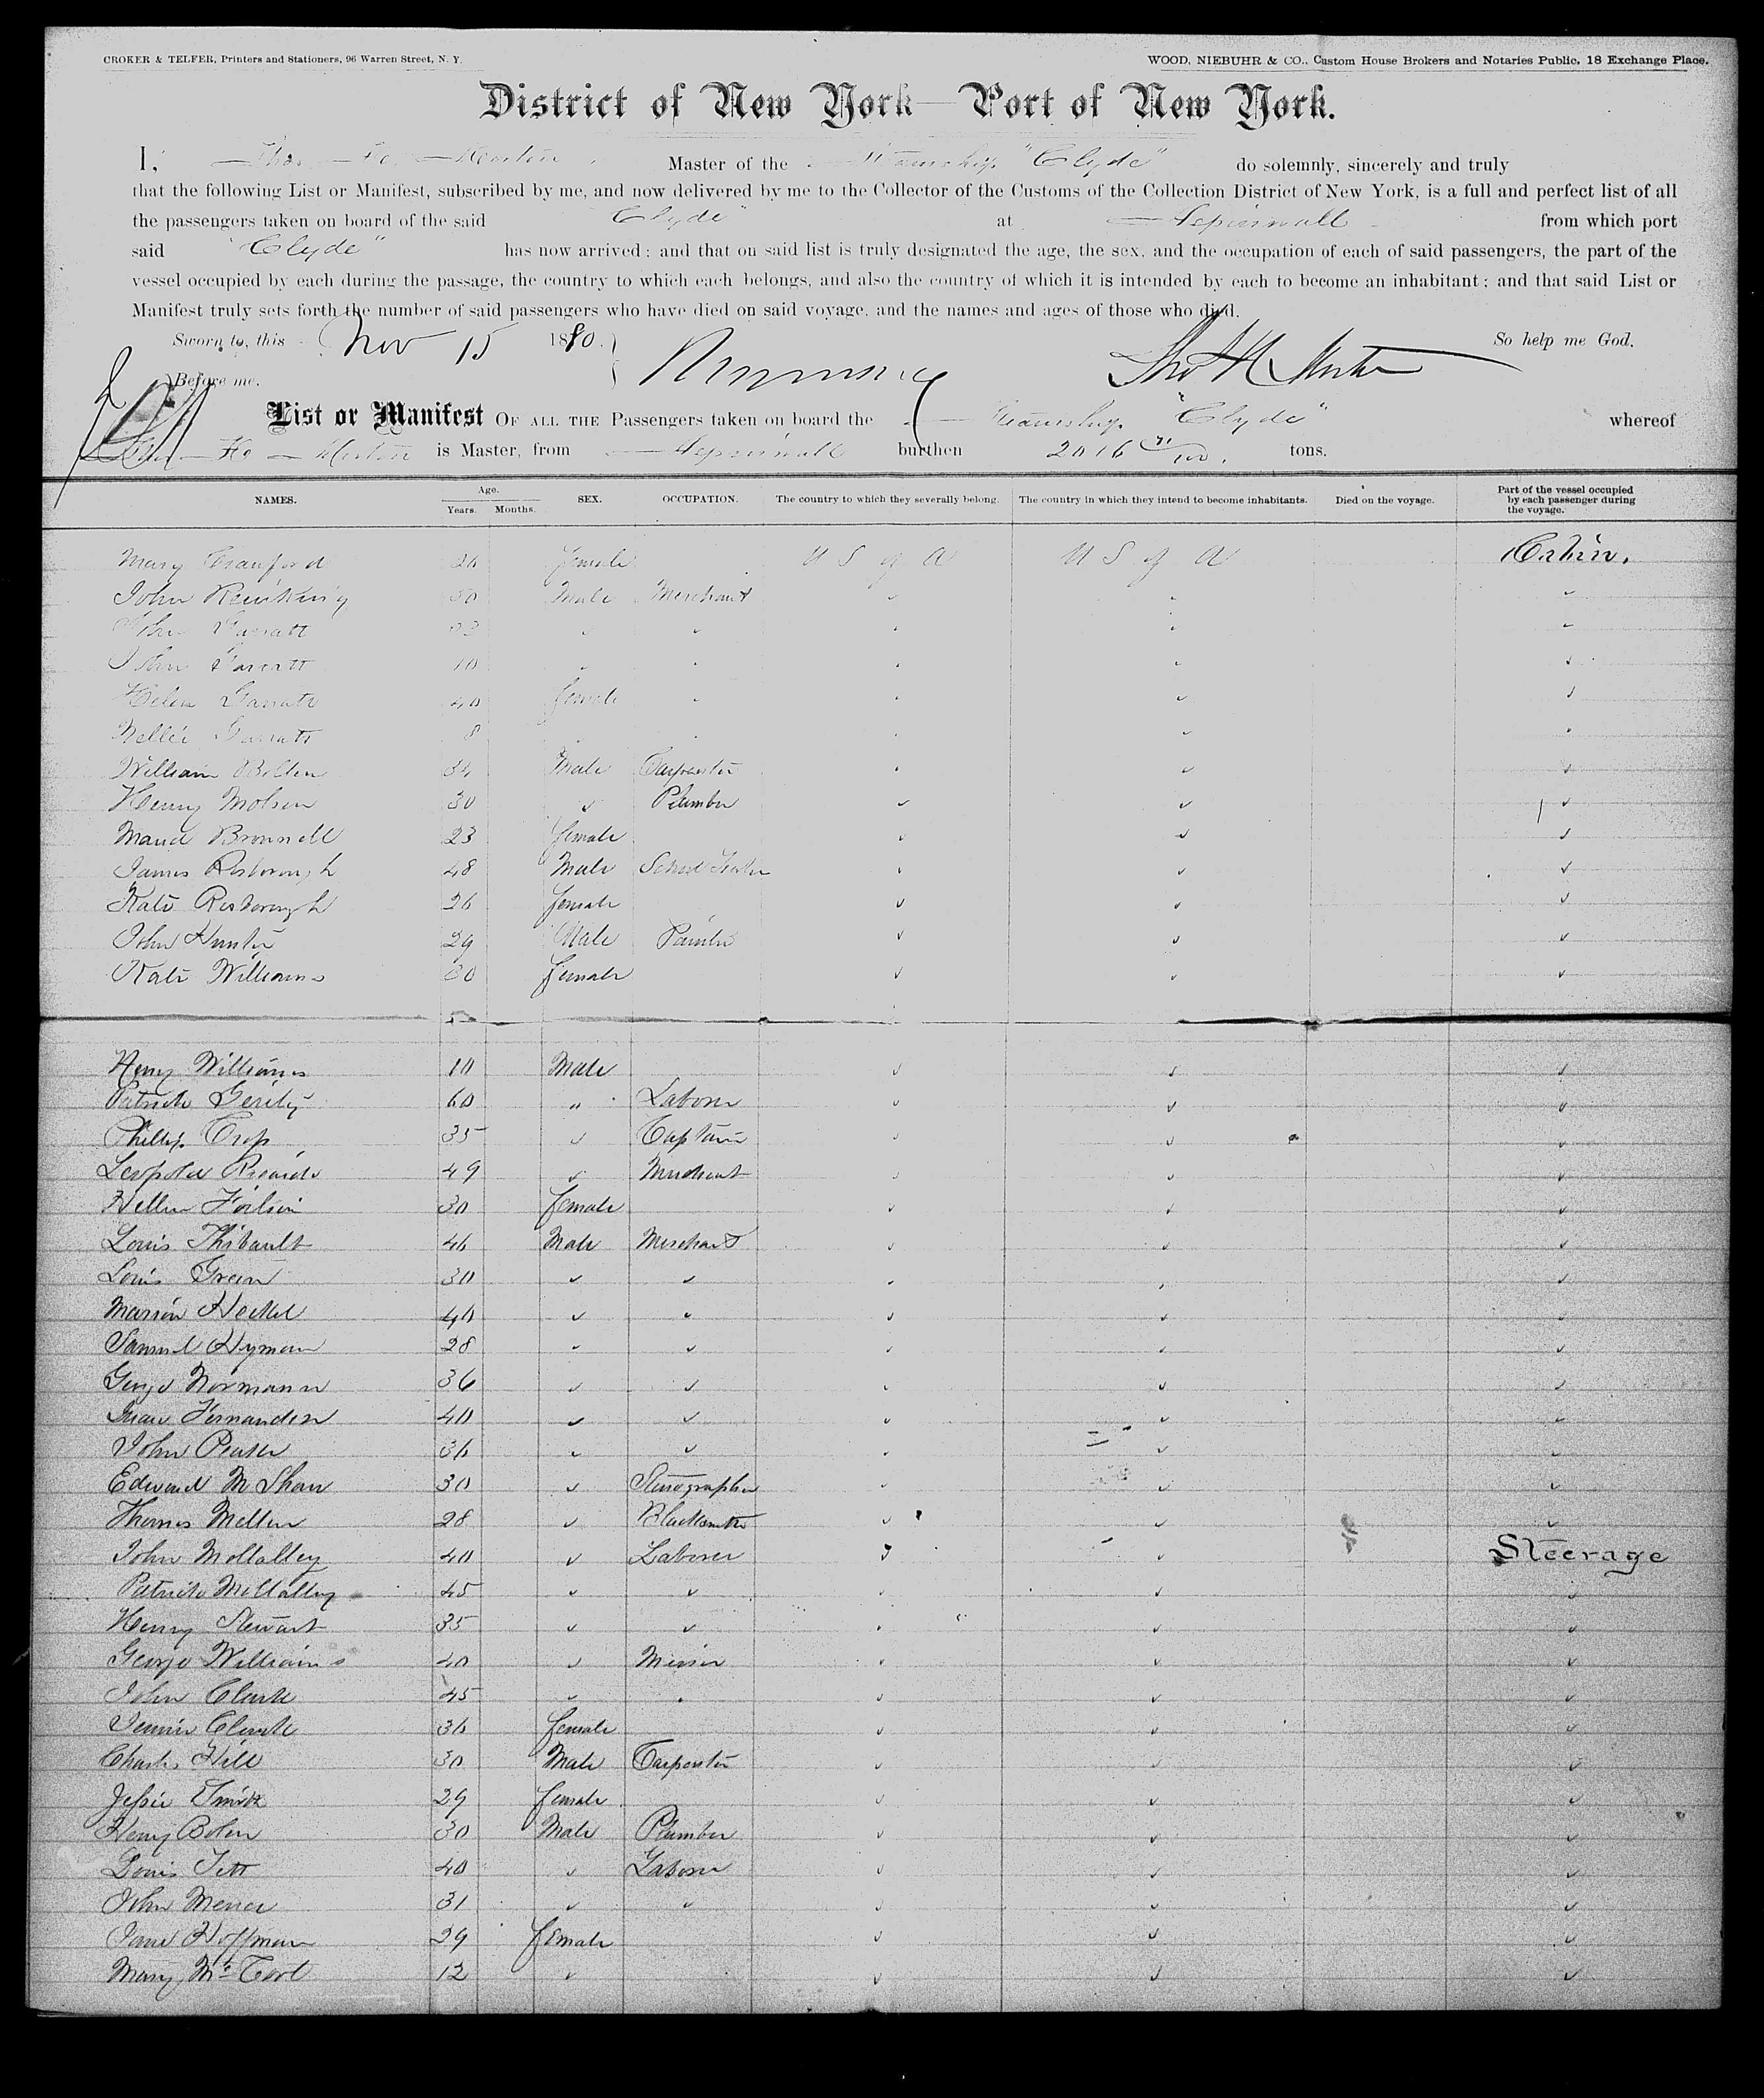 CROKER & TELFER, Printers and Stationers, 96 Warren Street, N. Y. WOOD, NIEBUHR & CO., Custom House Brokers and Notaries Public, 18 Exchange Place.
District of New York — Port of New York.
I, Master of the Steamship "Clyde" do solemnly, sincerely and truly
that the following List or Manifest, subscribed by me, and now delivered by me to the Collector of the Customs of the Collection District of New York, is a full and perfect list of all
the passengers taken on board of the said "Clyde" at from which port
said "Clyde" has now arrived; and that on said list is truly designated the age, the sex, and the occupation of each of said passengers, the part of the
vessel occupied by each during the passage, the country to which each belongs, and also the country of which it is intended by each to become an inhabitant; and that said List or
Manifest truly sets forth the number of said passengers who have died on said voyage, and the names and ages of those who died.
Sworn to, this Nov 15 1880. So help me God.
Before me.
List or Manifest OF ALL THE Passengers taken on board the Steamship "Clyde" whereof
is Master, from burthen 2016 tons.
NAMES. Age. Years. Months. SEX. OCCUPATION. The country to which they severally belong. The country in which they intend to become inhabitants. Died on the voyage. Part of the vessel occupied by each passenger during the voyage.
Mary Cranford 26 female U S of A U S of A Cabin.
John Reinking 30 Male Merchant
John Garratt
John Garratt 10
Helen Garratt 40 female
Nellie Garratt 8
William Bolten 34 Male Carpenter
Henry Molsen 30 Plumber
Maud Brownell 23 female
James Rosborough 48 Male School
Kate Rosborough 26 female
John Hunter 29 Male Painter
Kate Williams 30 female
Henry Williams 10 Male
Patrick Gerity 60 " Laborer
Phillip Crop 35 Captain
Leopold Ricardo 49 Merchant
30 female
Louis Thibault 46 Male Merchant
Louis Green 30
Marion Heckel 40
Samuel Hyman 28
George Normann 36
Juan Fernandez 40
John Peaser 36
Edward M Shaw 30 Stenographer
Thomas Mellen 28 Blacksmith
John McNalley 40 Laborer Steerage
Patrick McNalley 45
Henry Stewart 35
George Williams 40 Miner
John Clark 45
Jennie Clark 36 female
Charles Hill 30 Male Carpenter
Jessie Smith 29 female
Henry Bolen 30 Male Plumber
Louis Tett 40 Laborer
John Mercer 31
Jane Hoffman 29 female
Mary 12